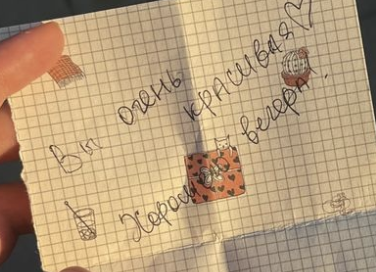 Вы очень красивая♡
Хорошего вечера!